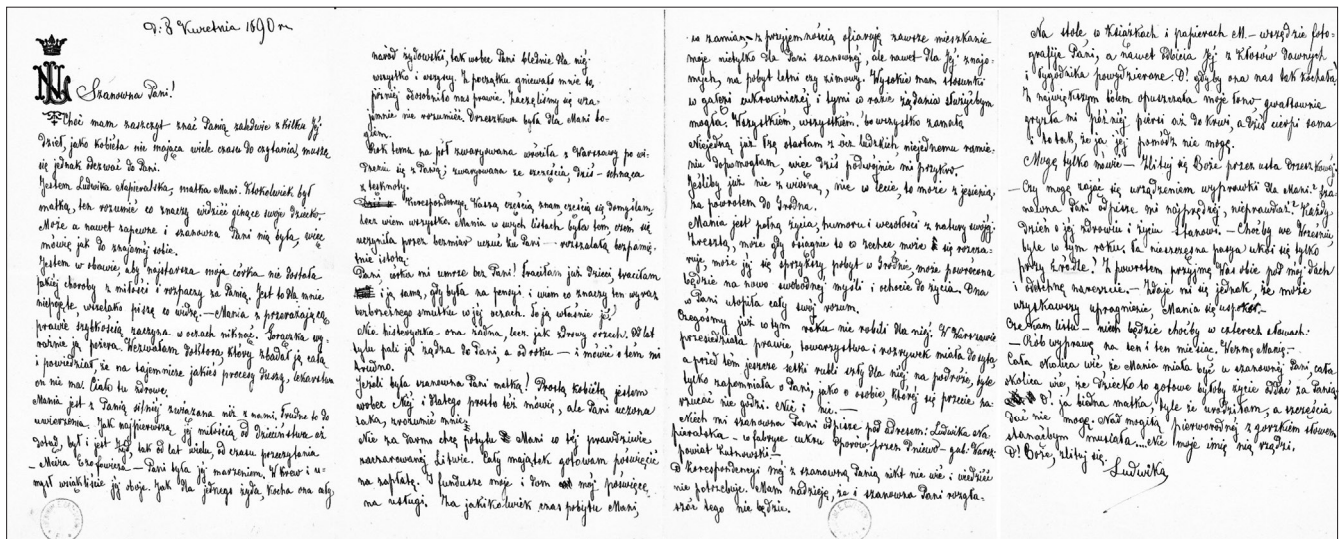 D. 8 Kwietnia 1890 r.
NL
Szanowna Pani!
Choć mam zaszczyt znać Panią zaledwie z kilku Jej
dzieł, jako kobieta nie mająca wiele czasu do czytania, muszę
się jednak odezwać do Pani.
Jestem Ludwika Napieralska, matka Mani. Ktokolwiek był
matką, ten rozumie co znaczy widzieć ginące swoje dziecko.
Może a nawet zapewne i szanowna Pani nią była, więc
mówię jak do znajomej sobie.
Jestem w obawie, aby najstarsza moja córka nie dostała
jakiej choroby z miłości i rozpaczy za Panią. Jest to dla mnie
niepojęte, wszelako piszę co widzę. — Mania z przerażającą
prawie szybkością zaczyna w oczach niknąć. Gorączka wy-
raźnie ją pożera. Wezwałam doktora, który zbadał ją całą
i powiedział, że na tajemnicze jakieś procesy duszy, lekarstwa
on nie ma! Ciało tu zdrowe.
Mania jest z Panią silniej związana niż z nami. Trudno to do
uwierzenia. Jak najpierwszą Jej miłością od dzieciństwa aż
dotąd, był i jest żyd, tak od lat wielu, od czasu przeczytania
— Meira Ezofowicza — Pani była jej marzeniem. W krew i u-
mysł wsiąkliście jej oboje. Jak dla jednego żyda kocha ona cały
naród żydowski, tak wobec Pani blednie dla niej
wszystko i wszyscy. Z początku gniewało mnie to,
później odosobniło nas prawie. Zaczęliśmy się wza-
jemnie nie rozumieć. Orzeszkowa była dla Mani bo-
giem.
Rok temu na pół zwaryowana wróciła z Warszawy po wi-
dzeniu się z Panią; zwaryowana ze szczęścia, dziś — schnąca
z tęsknoty.
Korespondencję Waszą częścią znam, częścią się domyślam,
lecz wiem wszystko. Mania w swych listach była tem, czem się
uczyniła przez bezmiar uczuć ku Pani — rozszalałą bezpamię-
tnie istotą.
Pani córka mi umrze bez Pani! Traciłam już dzieci, traciłam
i ją samą, gdy była na pensyi, i wiem co znaczy ten wyraz
bezbrzeżnego smutku w jej oczach. To ją właśnie je!
Nie histeryczka — ona żadna, lecz jak zdrowy orzech. Od lat
tylu pali ją żądza do Pani, a od roku — i mówić o tem mi
trudno.
Jeżeli była szanowna Pani matką! Prostą kobietą jestem
wobec Niej i dlatego prosto też mówię, ale Pani uczona
taka, zrozumie mnie.
Nie za darmo chcę pobytu Mani w tej prawdziwie
zaczarowanej Litwie. Cały majątek gotowam poświęcić
na zapłatę. I fundusze moje i dom mój poświęcę
na usługi. Za jakikolwiek czas pobytu Mani,
w zamian, — z przyjemnością ofiaruję zawsze mieszkanie
moje nietylko dla Pani szanownej, ale nawet dla Jej znajo-
mych, na pobyt letni czy zimowy. Wysokie mam stosunki
w gałęzi cukrowniczej i tymi w razie żądania służyćbym
mogła. Wszystkiem, wszystkiem! bo wszystko zamało.
Niejedną już łzę otarłam z ócz ludzkich niejednemu ramie-
niu dopomogłam, więc dziś podwójnie mi przykro.
Jeśliby już nie z wiosną, nie w lecie, to może z jesienią,
za powrotem do Grodna.
Mania jest pełną życia, humoru i wesołości z natury swojej.
Zresztą, może gdy osiągnie to co zechce może się rozcza-
ruje, może jej się sprzykrzy pobyt w Grodnie, może powrócona
będzie na nowo swobodnej myśli i ochocie do życia. Ona
w Pani utopiła cały swój rozum.
Czegośmy już w tym roku nie robili dla niej. W Warszawie
przesiedziała prawie, towarzystwa i rozrywek miała do syta
a przed tem jeszcze setki rubli szły dla niej na podróże, byle
tylko zapomniała o Pani, jako o osobie której się przecie na-
rzucać nie godzi. Nic i nic. —
Niech mi szanowna Pani odpisze pod adresem: Ludwika Na-
pieralska — w fabryce cukru Oporów przez Pniewo — gub. Warsz.
powiat Kutnowski. —
O korespondencyi mej z szanowną Panią nikt nie wie i wiedzieć
nie potrzebuje. Mam nadzieję, że i szanowna Pani rozgła-
szać tego nie będzie.
Na stole w książkach i papierach M. — wszędzie foto-
grafije Pani, a nawet odbicia Jej z Kłosów dawnych
i tygodnika powydzierane. O! gdyby ona nas tak kochała!
Z największym bólem opuszczała moje łono, gwałtownie
gryzła mi później piersi aż do krwi, a dziś cierpi sama
i to tak, że ja jej pomódz nie mogę.
Mogę tylko mówić — Zlituj się Boże! przez usta Orzeszkowej.
— Czy mogę zająć się urządzeniem wyprawki dla Mani? Sza-
nowna Pani odpisze mi najprędzej, nieprawdaż? Każdy
dzień o jej zdrowiu i życiu stanowi. — Choćby we Wrześniu,
byle w tym roku, ta nieszczęsna pasya ukoi się tylko
przy źródle! Z powrotem przyjmę Was obie pod mój dach
i odetchnę nareszcie. — Zdaje mi się jednak, że może
uzyskawszy upragnienie, Mania się uspokoi.
Czekam listu — niech będzie choćby w czterech słowach:
— Rób wyprawę na ten i ten miesiąc. Wezmę Manię. —
Cała okolica wie, że Mania miała być u szanownej Pani, cała
okolica wie, że dziecko to gotowe byłoby życie oddać za Panią.
O! ja biedna matka, tyle że urodziłam, a szczęścia
dać nie mogę. Nad mogiłą pierworodnej z gorzkiem słowem
stanąćbym musiała.... Nie moje imię nią rządzi.
O! Boże, zlituj się.
Ludwika